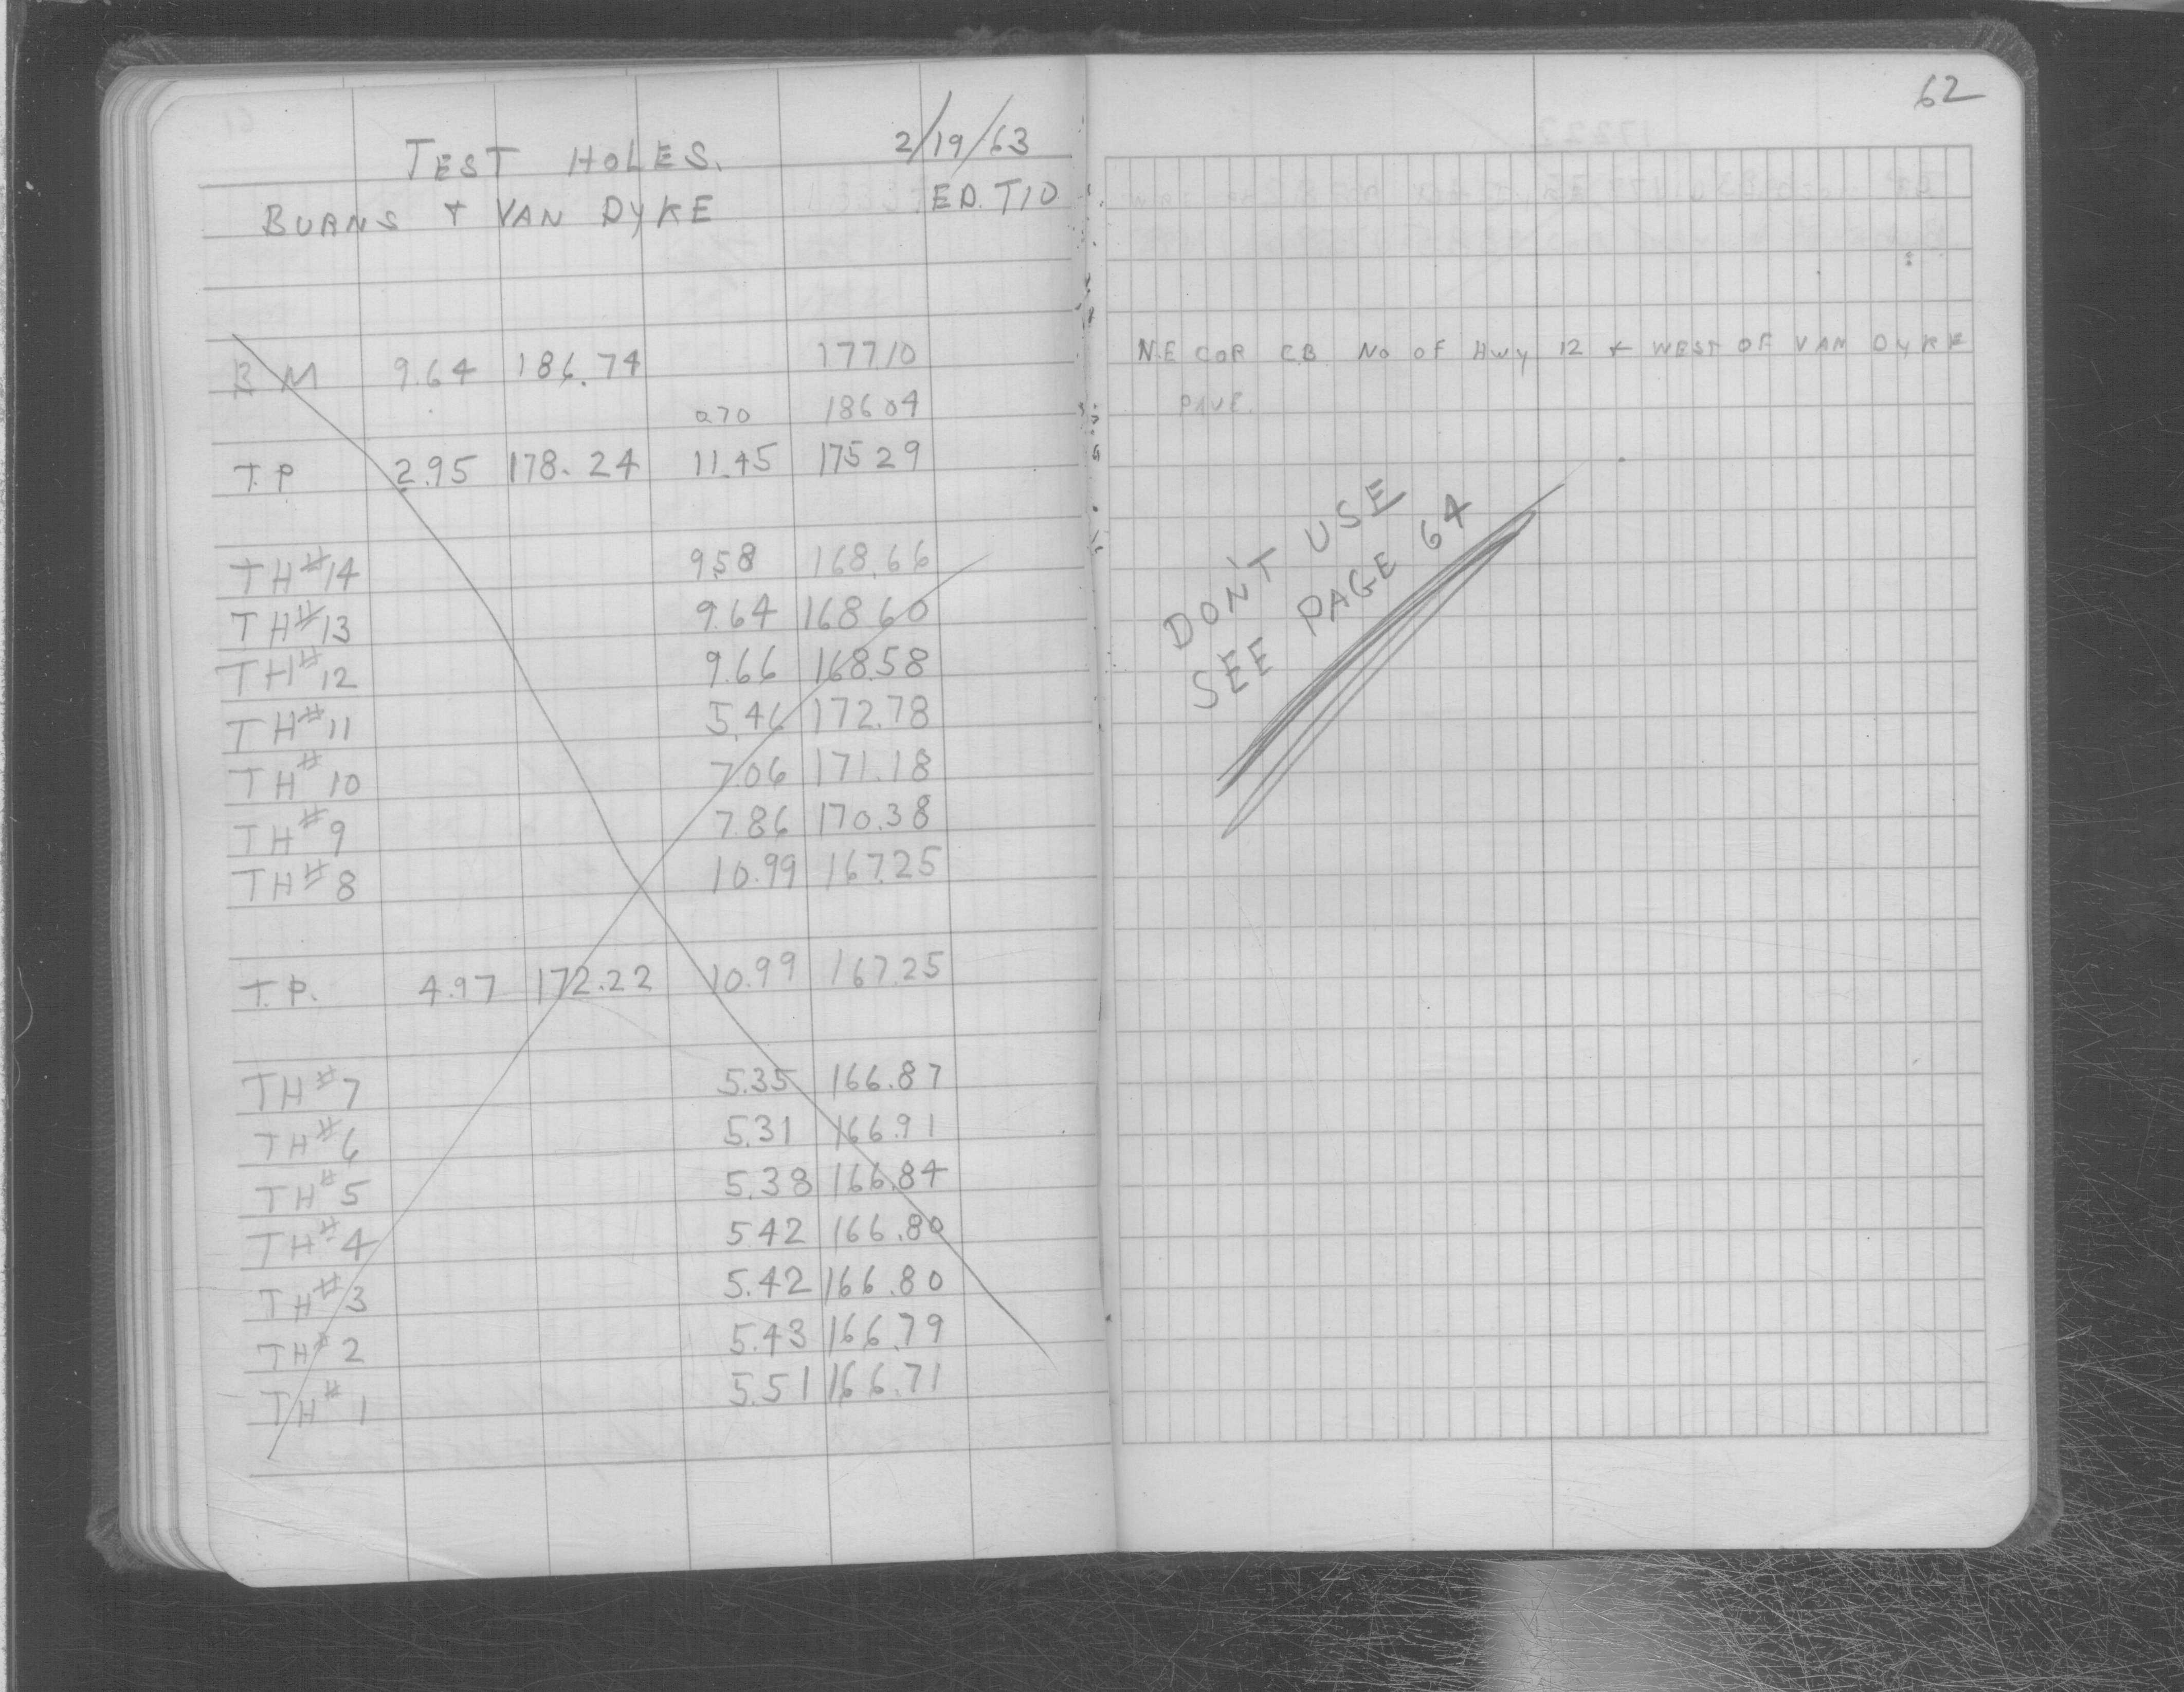 62
TEST HOLES. 2/19/63
BURNS + VAN DYKE ED. TIO
B M 9.64 186.74 177.10
0.70 186.04
T.P 2.95 178.24 11.45 175.29
TH#14 9.58 168.66
TH#13 9.64 168.60
TH#12 9.66 168.58
TH#11 5.46 172.78
TH#10 7.06 171.18
TH#9 7.86 170.38
TH#8 10.99 167.25
T.P. 4.97 172.22 10.99 167.25
TH#7 5.35 166.87
TH#6 5.31 166.91
TH#5 5.38 166.84
TH#4 5.42 166.80
TH#3 5.42 166.80
TH#2 5.43 166.79
TH#1 5.51 166.71
N.E COR C.B. NO OF HWY 12 + WEST OF VAN DYKE
PAVE.
DON'T USE
SEE PAGE 64